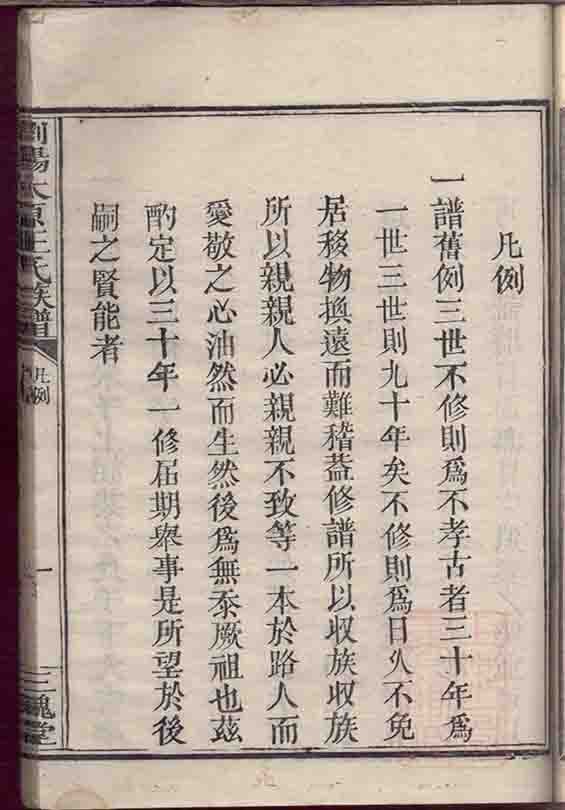 凡例
一譜舊例三世不修則爲不孝古者三十年爲
一世三世則九十年矣不修則爲日久不免
居移物換遠而難稽蓋修譜所以収族収族
所以親親人必親親不致等一本於路人而
愛敬之心油然而生然後爲無忝厥祖也茲
酌定以三十年一修届期舉事是所望於後
嗣之賢能者
瀏陽太原王氏族譜
凡例
一
三槐堂